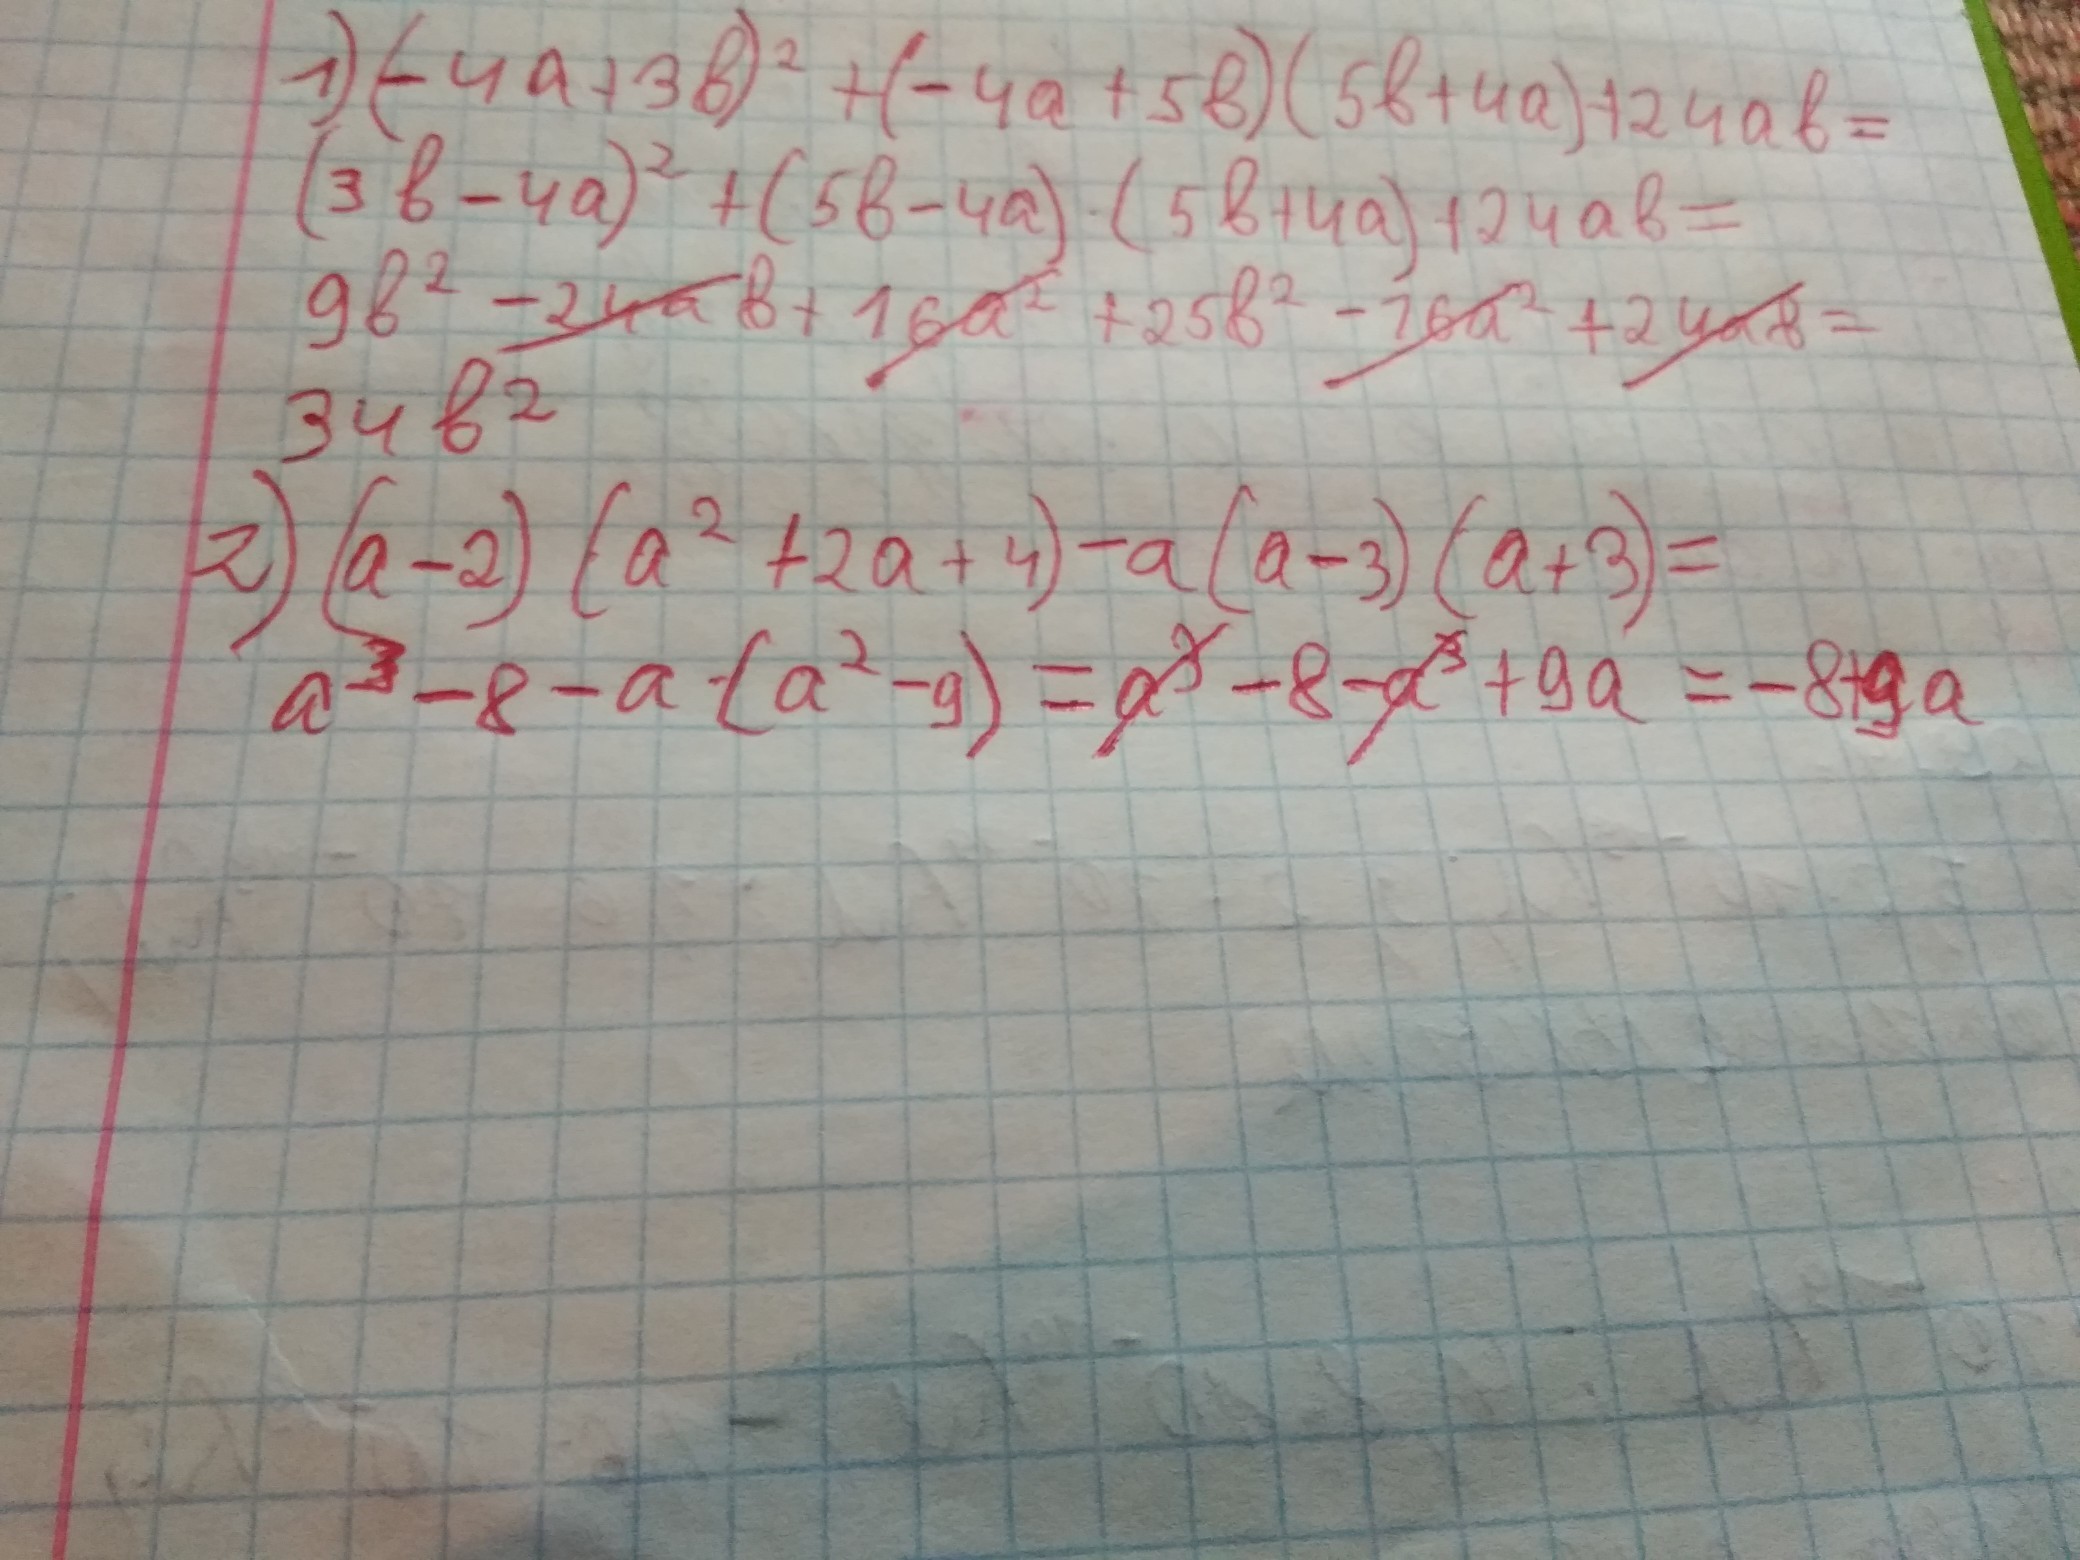 1) (-4a+3b)² +(-4a+5b)(5b+4a)+24ab=
(3b-4a)² +(5b-4a)·(5b+4a)+24ab=
9b² -24ab+16a² +25b² -16a² +24ab=
34b²
2) (a-2) (a² +2a+4)-a(a-3)(a+3)=
a³-8-a·(a²-9)=a³-8-a³+9a=-8+9a